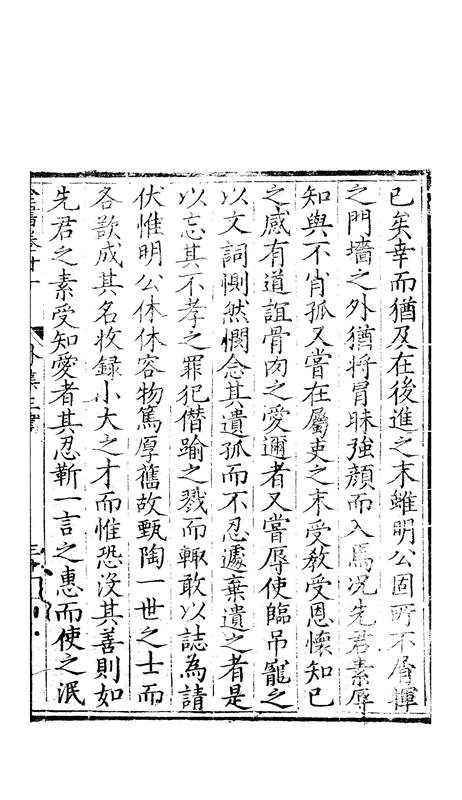 已矣幸而猶及在後進之末雖明公固所不屑揮
之門墻之外猶將冒昧強顔而入焉况先君素辱
知與不肖孤又嘗在屬吏之末受教受恩懷知已
之感有道誼骨肉之愛邇者又嘗辱使臨吊寵之
以文詞惻然憫念其遺孤而不忍遽棄遺之者是
以忘其不孝之罪犯僣踰之戮而輙敢以誌為請
伏惟明公休休容物篤厚舊故甄陶一世之士而
各欲成其名收録小大之才而惟恐沒其善則如
先君之素受知愛者其忍靳一言之惠而使之泯